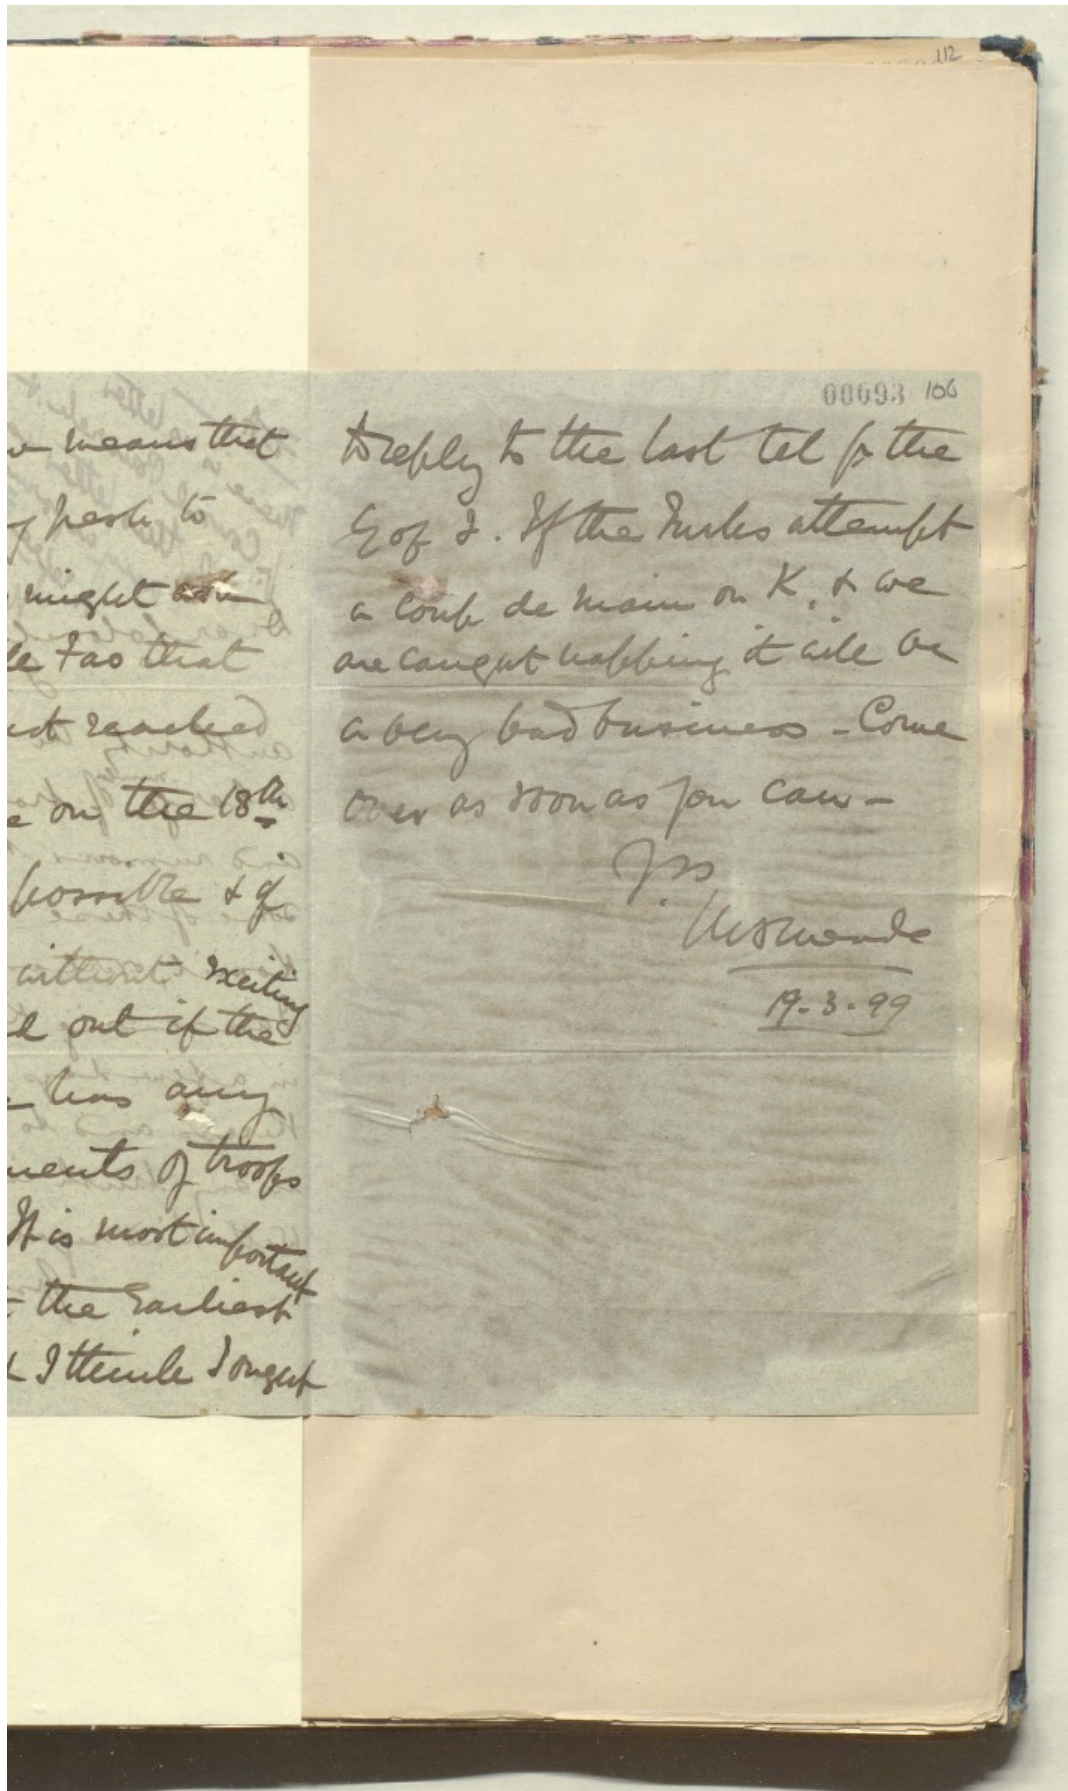 112
00093 106
means that
fresh to
might ask
Fao that
reached
on the 18th
possible & if
without exciting
out if the
has any
ments of troops
It is most important
the earliest
I think I ought
to reply to the last tel fr the
G of I. If the Turks attempt
a coup de main on K. & we
are caught napping it will be
a very bad business - Come
over as soon as you can -
Ys
19-3-99